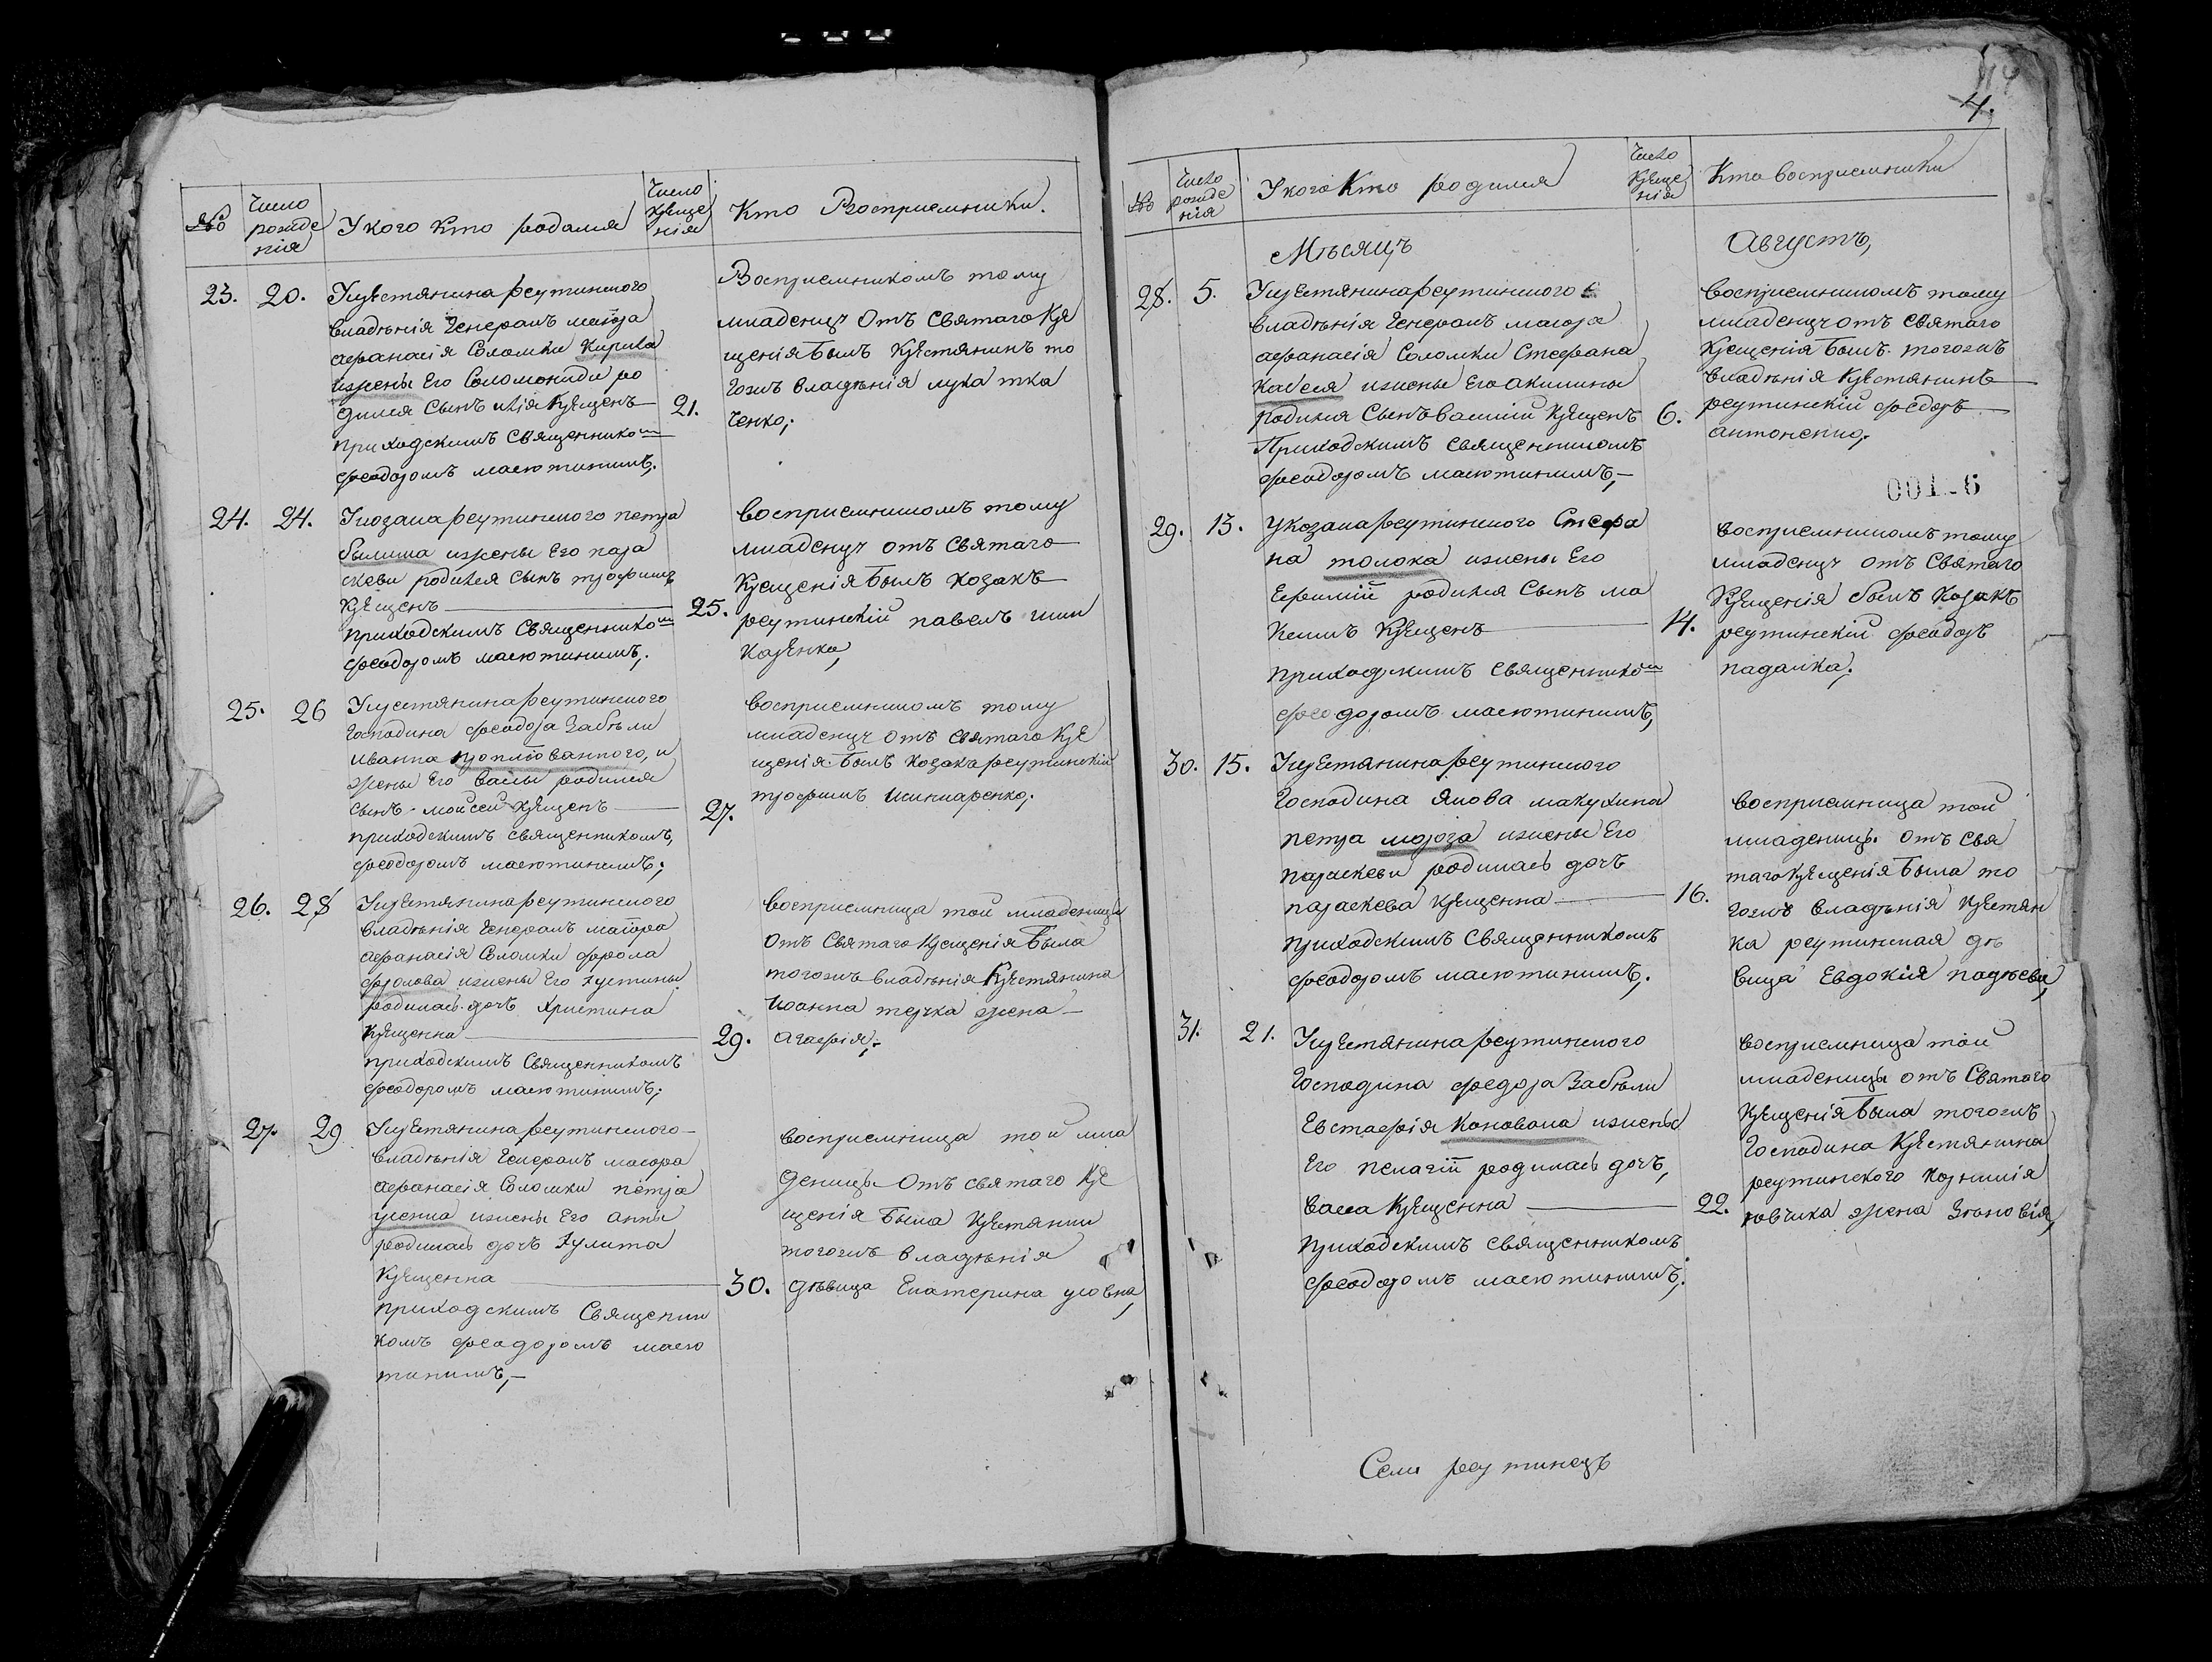 №
Число рожде нія
У кого кто родился
Число креще нія
Кто Восприемники.
23. 20.
Укрестянина реутинского
владѣнія Генералъ маіора
афанасія Соломки Кирила
ижены Его Соломониди ро
дился Сынъ илія Крещенъ
приходскимъ Священником
феодоромъ масютинимъ;
21.
Восприемникомъ тому
младенцу Отъ Святаго Кре
щенія былъ Крестянинъ то
гожъ владѣнія лука тка
ченко;
24. 24.
Укозака реутинского петра
билиша ижены Его пара
скеви родился Сынъ трофимъ
Крещенъ
приходскимъ Священником
феодоромъ масютинимъ;
25.
восприемникомъ тому
младенцу отъ Святаго
Крещенія былъ Козакъ
реутинскій павелъ шин
каренко,
25. 26
Укрестянина реутинского
Господина феодора Забѣли
иванна проплёванного, и
жены Его васы родился
сынъ моисей Крещенъ
приходскимъ священникомъ,
феодоромъ масютинимъ;
27.
восприемникомъ тому
младенцу отъ Святаго Кре
щенія былъ Козака реутинскій
трофимъ Шинкаренко;
26. 28
Укрестянина реутинского
владѣнія Генералъ маіора
афанасія Соломки фрола
фролова ижены Его Іустины
родилась дочъ Христина
Крещенна
приходскимъ Священникомъ
феодоромъ масютинимъ;
29.
восприемница той младеници
отъ Святаго Крещенія была
тогожъ владѣнія Крестянина
Иоанна жена
агафія;
27. 29
Укрестянина реутинского
владѣнія Генералъ маіора
афанасія Соломки петра
ижены Его анны
родилась дочъ Іулита
Крещенна
приходскимъ Священни
комъ феодоромъ масю
тинимъ,
30.
восприемница той мла
деницы отъ святаго Кре
щенія была Крестянки
тогожъ владѣнія
дѣвица Екатерина
4.
№
Число рожде нія
У кого Кто родился
Число Креще нія
Кто восприемники
Мѣсяцъ Августъ,
28. 5.
Укрестянина реутинского
владѣнія Генералъ маіора
афанасія Соломки Стефана
Киселя ижены Его акилины
родился Сынъ василій Крещенъ
Приходскимъ Священникомъ
феодоромъ масютинимъ,
6.
восприемникомъ тому
младенцу отъ Святаго
Крещенія былъ тогожъ
владѣнія Крестянинъ
реутинскій феодоръ
антоненко;
001-6
29. 13.
Укозака реутинского Стефа
на толока ижены Его
Евфиміи родился Сынъ ма
Крещенъ
приходскимъ Священником
феодоромъ масютинимъ,
14.
восприемникомъ тому
младенцу отъ Святаго
Крещенія былъ Козакъ
реутинскій феодоръ
падалка;
30. 15.
Укрестянина реутинского
Господина Якова макухина
петра мороза ижены Его
параскеви родилась дочъ
параскева Крещенна
приходскимъ Священникомъ
феодоромъ масютинимъ;
16.
восприемница той
младеницы отъ Свя
таго Крещенія была то
гожъ владѣнія Крестян
ка реутинская дѣ
вица Евдокія
31. 21.
Укрестянина реутинского
Господина федора Забѣли
Евстафія Коновала ижены
Его пелагіи родилась дочъ,
васса Крещенна
приходскимъ священникомъ
феодоромъ масютинимъ;
22.
восприемница той
младеницы отъ Святаго
Крещенія была тогожъ
Господина Крестянина
реутинского Корнилія
жена Зѣновія,
Села реутинецъ